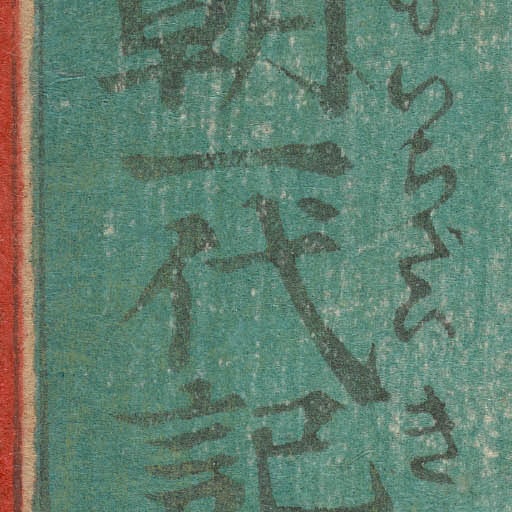 朝一代記
いちだいき